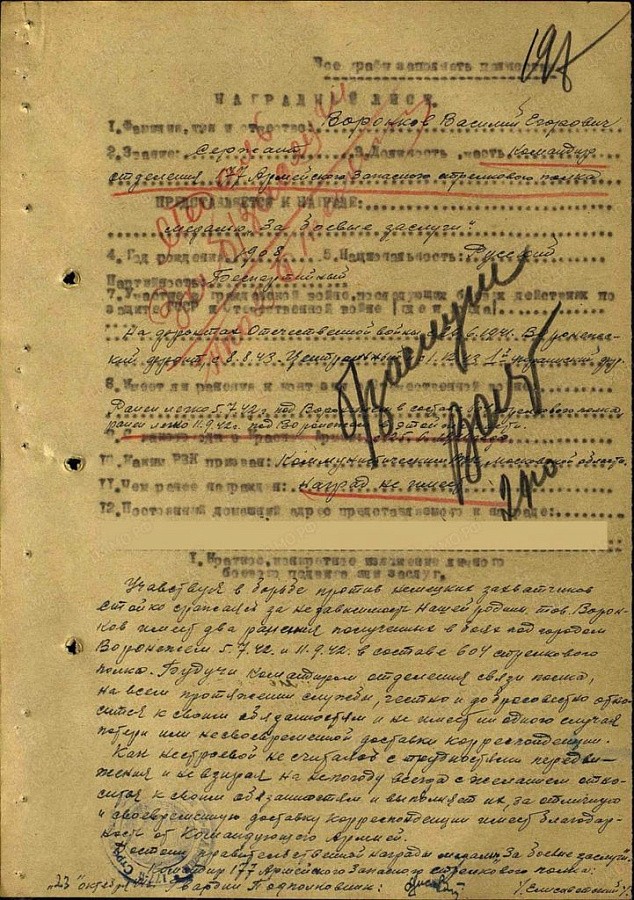 Все графы заполнять полностью
198
НАГРАДНОЙ ЛИСТ.
1. Фамилия, имя и отчество: Воронков Василий Егорович
2. Звание: Сержант 3. Должность, часть Командир
отделения 177 Армейского Запасного стрелкового полка
ПРЕДСТАВЛЯЕТСЯ К НАГРАДЕ:
медаль „За боевые заслуги"
4. Год рождения 1908 5. Национальность: Русский
Партийность: Беспартийный
7. Участие в гражданской войне, последующих боевых действиях по
защите СССР и отечественной войне
На фронтах Отечественной войны 6.1941. Воронеж-
ский фронт, с 8.8.43. Центральный 1 Украинский фр.
8. Имеет ли ранения и контузии в отечественной войне
Ранен легко 5.7.42г. под Воронежем в составе стрелкового полка,
ранен легко 11.9.42г. под Воронежем
9. С какого времени в Красной Армии:
10. Каким РВК призван: Коммунистическим РВК Московской области.
11. Чем ранее награжден: Наград не имеет
12. Постоянный домашний адрес представляемого к награде:
I. Краткое, конкретное изложение личного
боевого подвига или заслуг.
Учавствуя в борьбе против немецких захватчиков
стойко сражался за независимость нашей родины. тов. Ворон-
ков имеет два ранения полученных в боях под городом
Воронежем 5.7.42 и 11.9.42. в составе 604 стрелкового
полка. Будучи командиром отделения связи полка,
на всем протяжении службы, честно и добросовестно отно-
сится к своим обязанностям и не имеет ни одного случая
потери или несвоевременной доставки корреспонденции.
Как нестроевой не считался с трудностями передви-
жения и не взирая на непогоду всегда с желанием отно-
сится к своим обязанностям и выполняет их, за отличную
и своевременную доставку корреспонденции имеет благодар-
ность от Командующего Армией.
Достоин правительственной награды медали „За боевые заслуги".
Командир 177 Армейского Запасного стрелкового полка:
„23" октября Гвардии Подполковник: /Елисаветский/